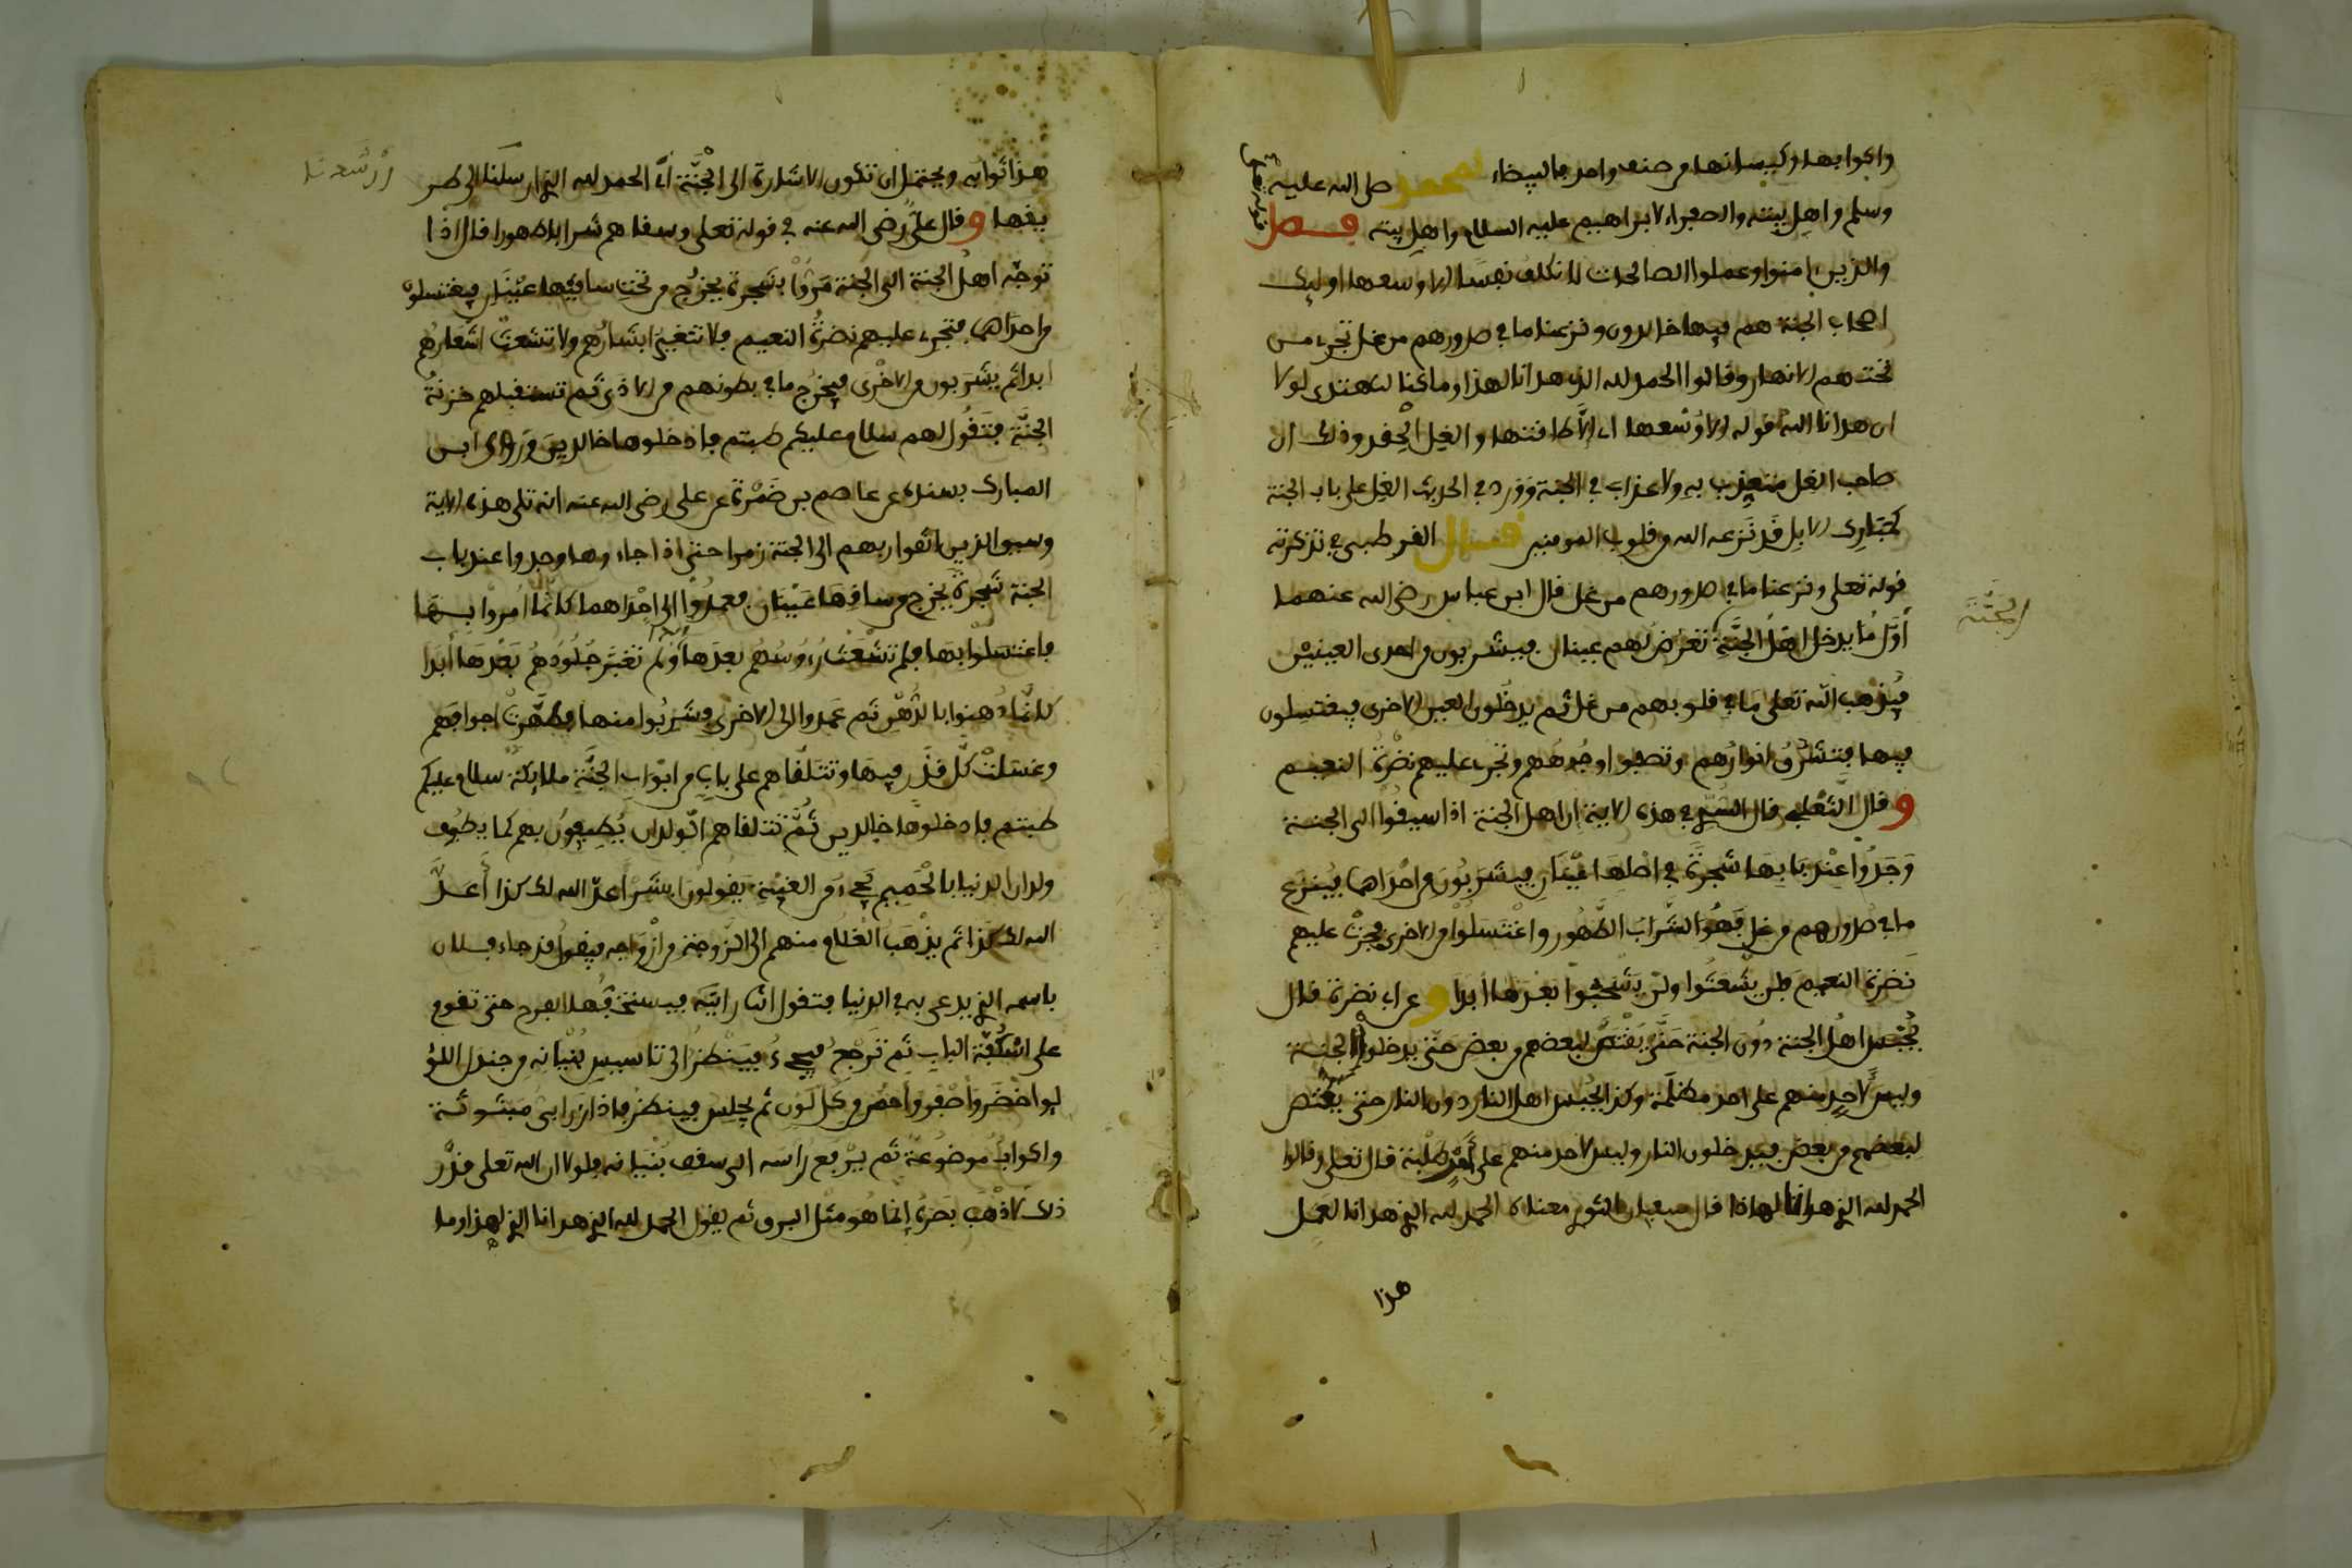 وأكوابها وكيسانها من صنف واحد فالبيضاء لمحمد صلى الله عليه
وسلم وأهل بيته والصفراء لابراهيم عليه السلام وأهل بيته فصل
قوله تعالى
والذين ءامنوا وعملوا الصالحات لا نكلف نفسا الا وسعها اوليك
اصحاب الجنة هم فيها خالدون ونزعنا ما في صدورهم من غل تجرى من
تحتهم الانهار وقالوا الحمد لله الذى هدانا لهذا وما كنا لنهتدى لولا
ان هدانا الله قوله الا وسعها اى الا طاقتها والغل الحقد وذلك ان
صاحب الغل متعذب به ولا عذاب في الجنة وورد في الحديث الغل على باب الجنة
كمبارك الابل قد نزعه الله من قلوب المومنين قال القرطبي في تذكرته
قوله تعلى ونزعنا ما في صدورهم من غل قال ابن عباس رضى الله عنهما
أول ما يدخل اهل الجنة تعرض لهم عينان فيشربون من احدى العينين
الجنة
فيذهب الله تعلى ما في قلوبهم من غل ثم يدخلون العين الاخرى فيغتسلون
فيها فتشرق الوانهم وتصفوا وجوههم وتجرى عليهم نضرة النعيم
وقال الثعلبي قال السدي في هذه الاية ان اهل الجنة اذا سيقوا الى الجنة
وجدوا عند بابها شجرة في اصلها عينان فيشربون من احداهما فينزع
ما في صدورهم من غل فهو الشراب الطهور واغتسلوا من الاخرى فجرت عليهم
نضرة النعيم فلن يشعثوا ولن يشحبوا بعدها ابدا وعن ابى نضرة قال
يحبس اهل الجنة دون الجنة حتى يقتص لبعضهم من بعض حتى يدخلوا الجنة
وليس لاحد منهم على احد مظلمة وكذا يحبس اهل النار دون النار حتى يقتص
لبعضهم من بعض فيدخلون النار وليس لاحد منهم على احد طلبة قال تعلى وقالوا
الحمد لله الذي هدانا لهاذا قال سفيان الثوري معناه الحمد لله الذي هدانا لعمل
هذا
هذا ثوابه ويحتمل ان تكون الاشارة الى الجنة اى الحمد لله الذي ارسلنا الى طر
يقها وقال علي رضى الله عنه في قوله تعلى وسقاهم شرابا طهورا قال اذا
توجه اهل الجنة الى الجنة مروا بشجرة يخرج من تحت ساقيها عينان فيغتسلوا
من احداهما فتجرى عليهم نضرة النعيم فلا تتغير ابشارهم ولا تشعث اشعارهم
ابدا ثم يشربون من الاخرى فيخرج ما في بطونهم من الاذى ثم تستقبلهم خزنة
الجنة فتقول لهم سلام عليكم طبتم فادخلوها خالدين وروى ابن
المبارك بسنده عن عاصم بن ضمرة عن على رضى الله عنه انه تلى هذه الاية
وسيق الذين اتقوا ربهم الى الجنة زمرا حتى اذا جاءوها وجدوا عند باب
الجنة شجرة يخرج من ساقها عينان فعمدوا الى احداهما كانما امروا بها
فاغتسلوا بها فلم تشعث رءوسهم بعدها ابدا ولم تغبر جلودهم بعدها أبدا
كانما دهنوا بالدهن ثم عمدوا الى الاخرى فشربوا منها فطهرت اجوافهم
وغسلت كل قذر فيها وتتلقاهم على باب من ابواب الجنة ملايكة سلام عليكم
طبتم فادخلوها خالدين ثم تتلقاهم الولدان يطيفون بهم كما يطوف
ولدان الدنيا بالحميم يجىء من الغيبة يقولون ابشر أعد الله لك كذا أعد
الله لك كذا ثم يذهب الغلام منهم الى الزوجة من ازواجه فيقول قد جاء فلان
باسمه الذي يدعى به في الدنيا فتقول انت رايته فيستخفها الفرح حتى تقوم
على اسكفة الباب ثم ترجع فيجىء فينظر الى تاسيس بنيانه من جندل اللؤ
لوا اخضر واصفر واحمر من كل لون ثم يجلس فينظر فاذا زرابى مبثوثة
واكواب موضوعة ثم يرفع راسه الى سقف بنيانه فلولا ان الله تعلى قدر
ذلك لاذهب بصره إنما هو مثل البرق ثم يقول الحمد لله الذي هدانا لهذا وما